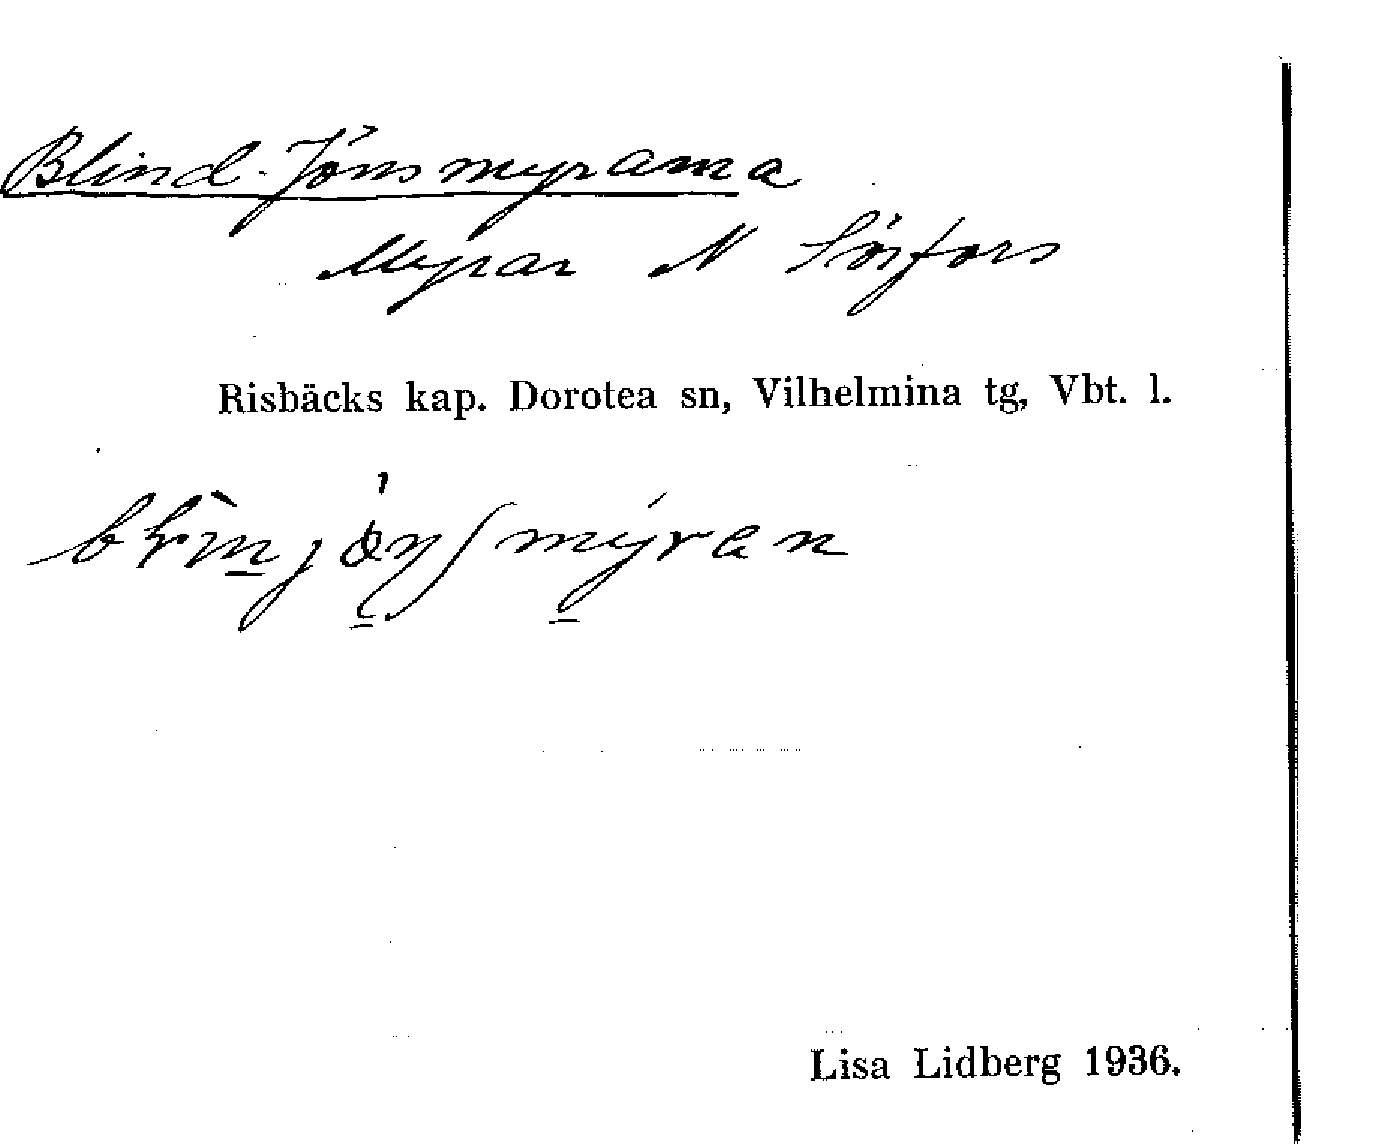 Blind-Jönsmyrarna
Myrar N Sörfors
Risbäcks kap. Dorotea sn, Vilhelmina tg, Vbt. l.
Lisa Lidberg 1936.